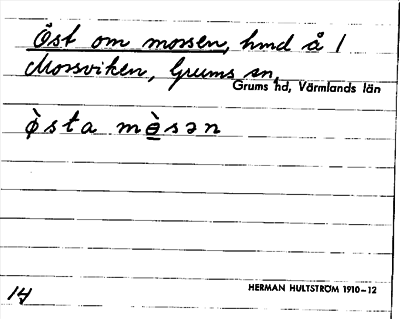 Öst om mossen, hmd å 1
Mossviken, Grums sn,
Grums hd, Värmlands län
ø̀sta mə̀sən
HERMAN HULTSTRÖM 1910–12
14